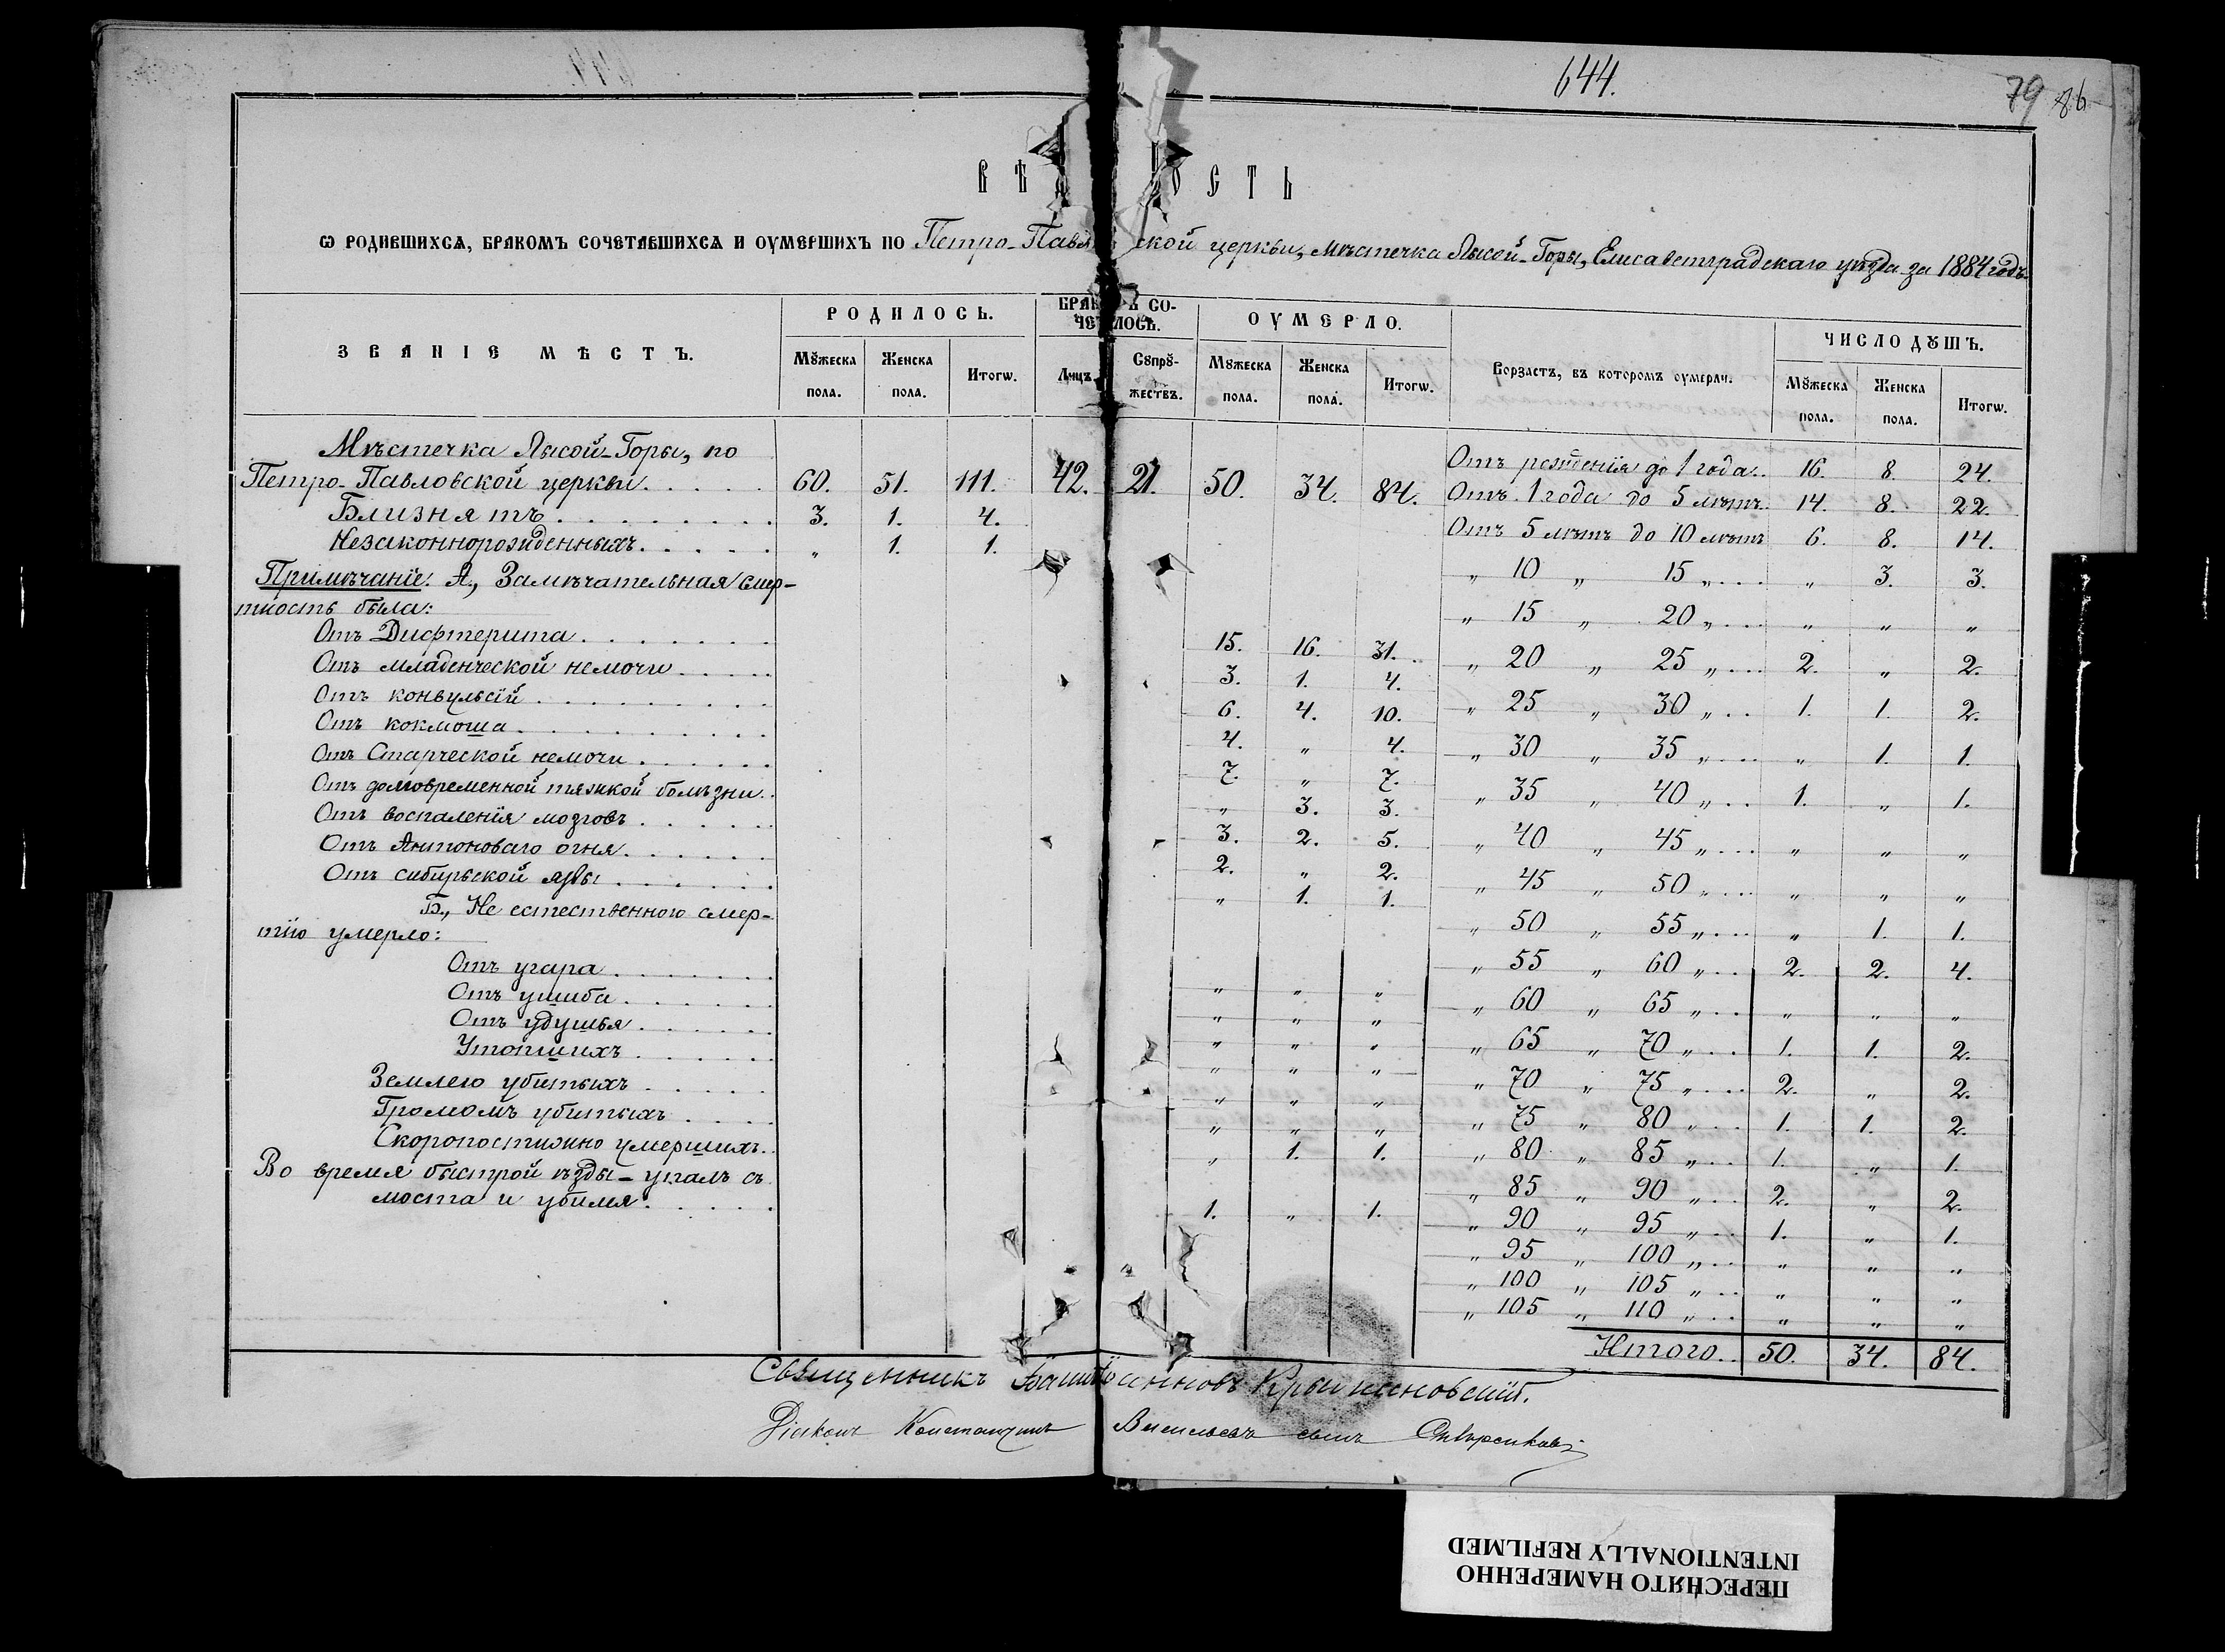 644.
79 86
ВѢДОМОСТЬ
Ѡ РОДИВШИХСЯ, БРАКОМЪ СОЧЕТАВШИХСЯ И ОУМЕРШИХЪ ПО Петро-Павловской церкви, мѣстечка Лысой-Горы, Елисаветградскаго уѣзда за 1884 годъ.
ЗВАНІЕ МѢСТЪ. РОДИЛОСЬ. БРАКОМЪ СОЧЕТАЛОСЬ. ОУМЕРЛО. Ворзастъ, въ которомъ оумерли. ЧИСЛО ДꙋШЪ.
Мꙋжеска пола. Женска пола. Итогѡ. Лицъ. Сꙋпрꙋжествъ. Мꙋжеска пола. Женска пола. Итогѡ. Мꙋжеска пола. Женска пола. Итогѡ.
Мѣстечка Лысой-Горы, по
Петро-Павловской церкви . . . . . 60. 51. 111. 42. 21. 50. 34. 84.
Близнятъ . . . . . . . . 3. 1. 4.
Незаконнорожденныхъ . . . . . „ 1. 1.
Примѣчаніе. А., Замѣчательная смер-
тность была:
Отъ Дифтерита . . . . . . . 15. 16. 31.
Отъ младенческой немочи . . . . . 3. 1. 4.
Отъ конвульсій . . . . . . . . . 6. 4. 10.
Отъ коклюша . . . . . . . . . . 4. „ 4.
Отъ Старческой немочи . . . . . . 7. „ 7.
Отъ долговременной тяжкой болѣзни . . „ 3. 3.
Отъ воспаленія мозговъ . . . . . . 3. 2. 5.
Отъ Антоноваго огня . . . . . . 2. „ 2.
Отъ сибирской язвы . . . . . . . „ 1. 1.
Б., Не естественною смер-
тію умерло:
Отъ угара . . . . . . . „ „ „
Отъ ушиба . . . . . . . „ „ „
Отъ удушья . . . . . . „ „ „
Утопшихъ . . . . . . „ „ „
Землею убитыхъ . . . . . „ „ „
Громомъ убитыхъ . . . . „ „ „
Скоропостижно умершихъ . . „ 1. 1.
Во время быстрой ѣзды - упалъ съ
моста и убился . . . . . 1. „ 1.
Отъ рожденія до 1 года . . 16. 8. 24.
Отъ 1 года до 5 лѣтъ . 14. 8. 22.
Отъ 5 лѣтъ до 10 лѣтъ 6. 8. 14.
„ 10 „ 15 „ . . . „ 3. 3.
„ 15 „ 20 „ . . . „ „ „
„ 20 „ 25 „ . . . 2. „ 2.
„ 25 „ 30 „ . . 1. 1. 2.
„ 30 „ 35 „ . . . „ 1. 1.
„ 35 „ 40 „ . . 1. „ 1.
„ 40 „ 45 „ . . . „ „ „
„ 45 „ 50 „ . . . „ „ „
„ 50 „ 55 „ . . . „ 1. 1.
„ 55 „ 60 „ . . 2. 2. 4.
„ 60 „ 65 „ . . „ „ „
„ 65 „ 70 „ . . 1. 1. 2.
„ 70 „ 75 „ . . . 2. „ 2.
„ 75 „ 80 „ . . 1. 1. 2.
„ 80 „ 85 „ . . 1. „ 1.
„ 85 „ 90 „ . . . 2. „ 2.
„ 90 „ 95 „ . . . 1. „ 1.
„ 95 „ 100 „ . . „ „ „
„ 100 „ 105 „ . . „ „ „
„ 105 „ 110 „ . . „ „ „
Итого . . 50. 34. 84.
Священникъ
Діаконъ Константинъ Васильевъ сынъ
ПЕРЕСНЯТО НАМЕРЕННО
INTENTIONALLY REFILMED